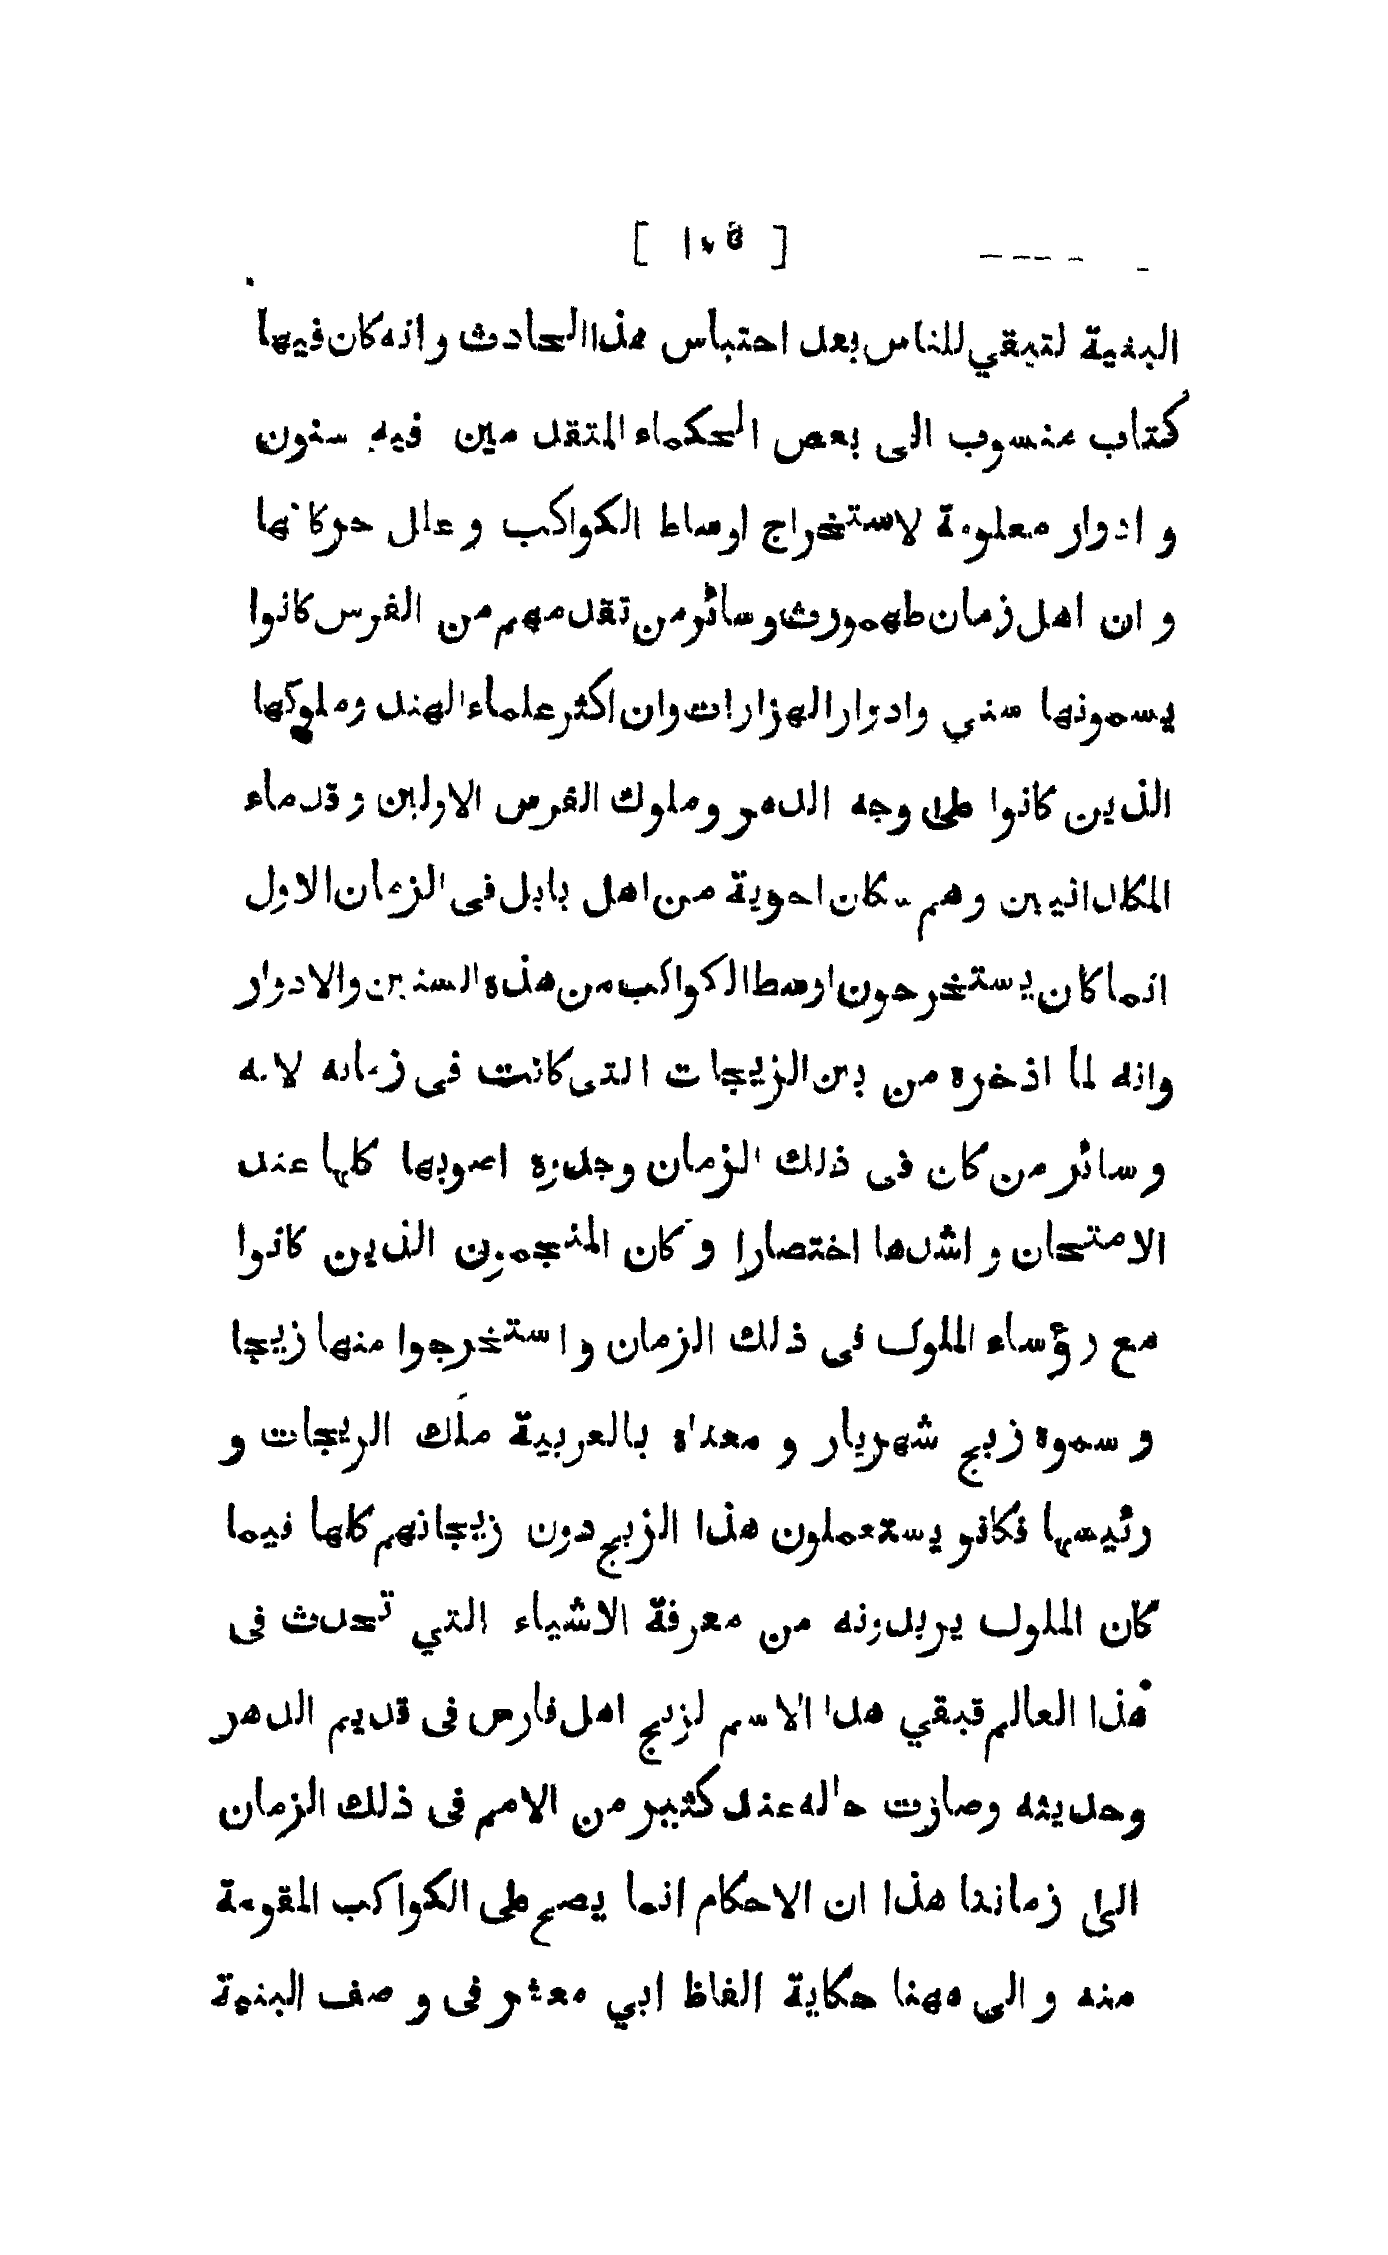 [ ١٠٥ ]
البنية لتبقي للناس بعد احتباس هذا الحادث وانه كان فيها
كتاب منسوب الى بعض الحكماء المتقدمين فيه سنون
و ادوار معلومة لاستخراج اوساط الكواكب وعلل حركاتها
و ان اهل زمان طهمورث وسائر من تقدمهم من الفرس كانوا
يسمونها سني وادوار الهزارات وان اكثر علماء الهند وملوكها
الذين كانوا على وجه الدهر وملوك الفرس الاولين وقدماء
الكلدانيين وهم سكان احوية من اهل بابل فى الزمان الاول
انما كان يستخرجون اوسط الكواكب من هذه السنين والادوار
وانه لما اذخره من بين الزيجات التى كانت فى زمانه لانه
و سائر من كان فى ذلك الزمان وجدوه اصوبها كلها عند
الامتحان و اشدها اختصارا و كان المنجمون الذين كانوا
مع رؤساء الملوك فى ذلك الزمان و استخرجوا منها زيجا
و سموه زيج شهريار و معناه بالعربية ملك الزيجات و
رئيسها فكانو يستعملون هذا الزيج دون زيجاتهم كلها فيما
كان الملوك يريدونه من معرفة الاشياء التي تحدث فى
هذا العالم فبقي هذا الاسم لزيج اهل فارس فى قديم الدهر
وحديثه وصارت حاله عند كثير من الامم فى ذلك الزمان
الى زماننا هذا ان الاحكام انما يصح على الكواكب المقومة
منه و الى ههنا حكاية الفاظ ابي معشر فى و صف البنية